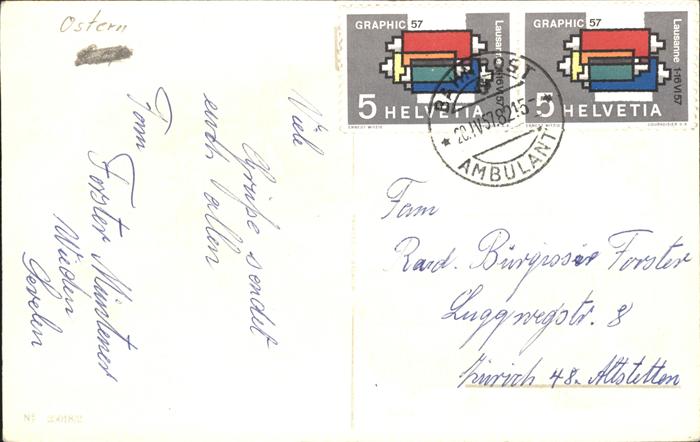 Ostern
Viele
Grüße sendet
euch allen
Fam
Forster Müntener
Wieden
Sevelen
GRAPHIC 57
Lausanne 1-16 VI 57
5 HELVETIA
ERNEST WITZIG
GRAPHIC 57
Lausanne 1-16 VI 57
5 HELVETIA
COURVOISIER S.A.
BAHNPOST
20.IV.57.8215-
AMBULANT
Fam
Rad. Bürgisser Forster
Luggwegstr. 8
Zürich 48. Altstetten